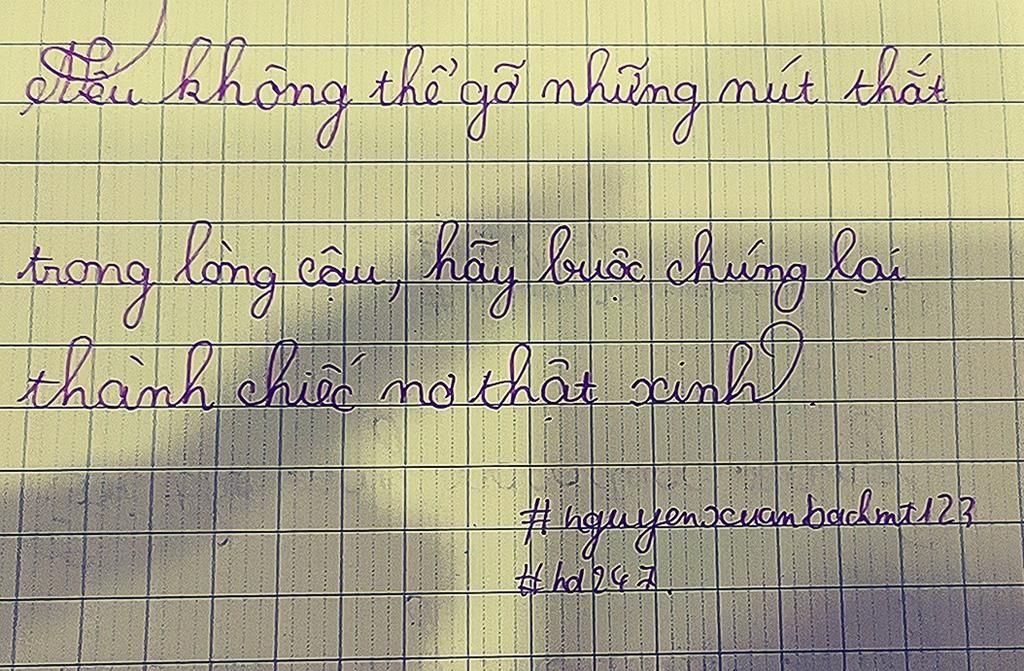 Nếu không thể gỡ những nút thắt
trong lòng cậu, hãy buộc chúng lại
thành chiếc nơ thật xinh?
#nguyenxuanbachmt123
#hd247.